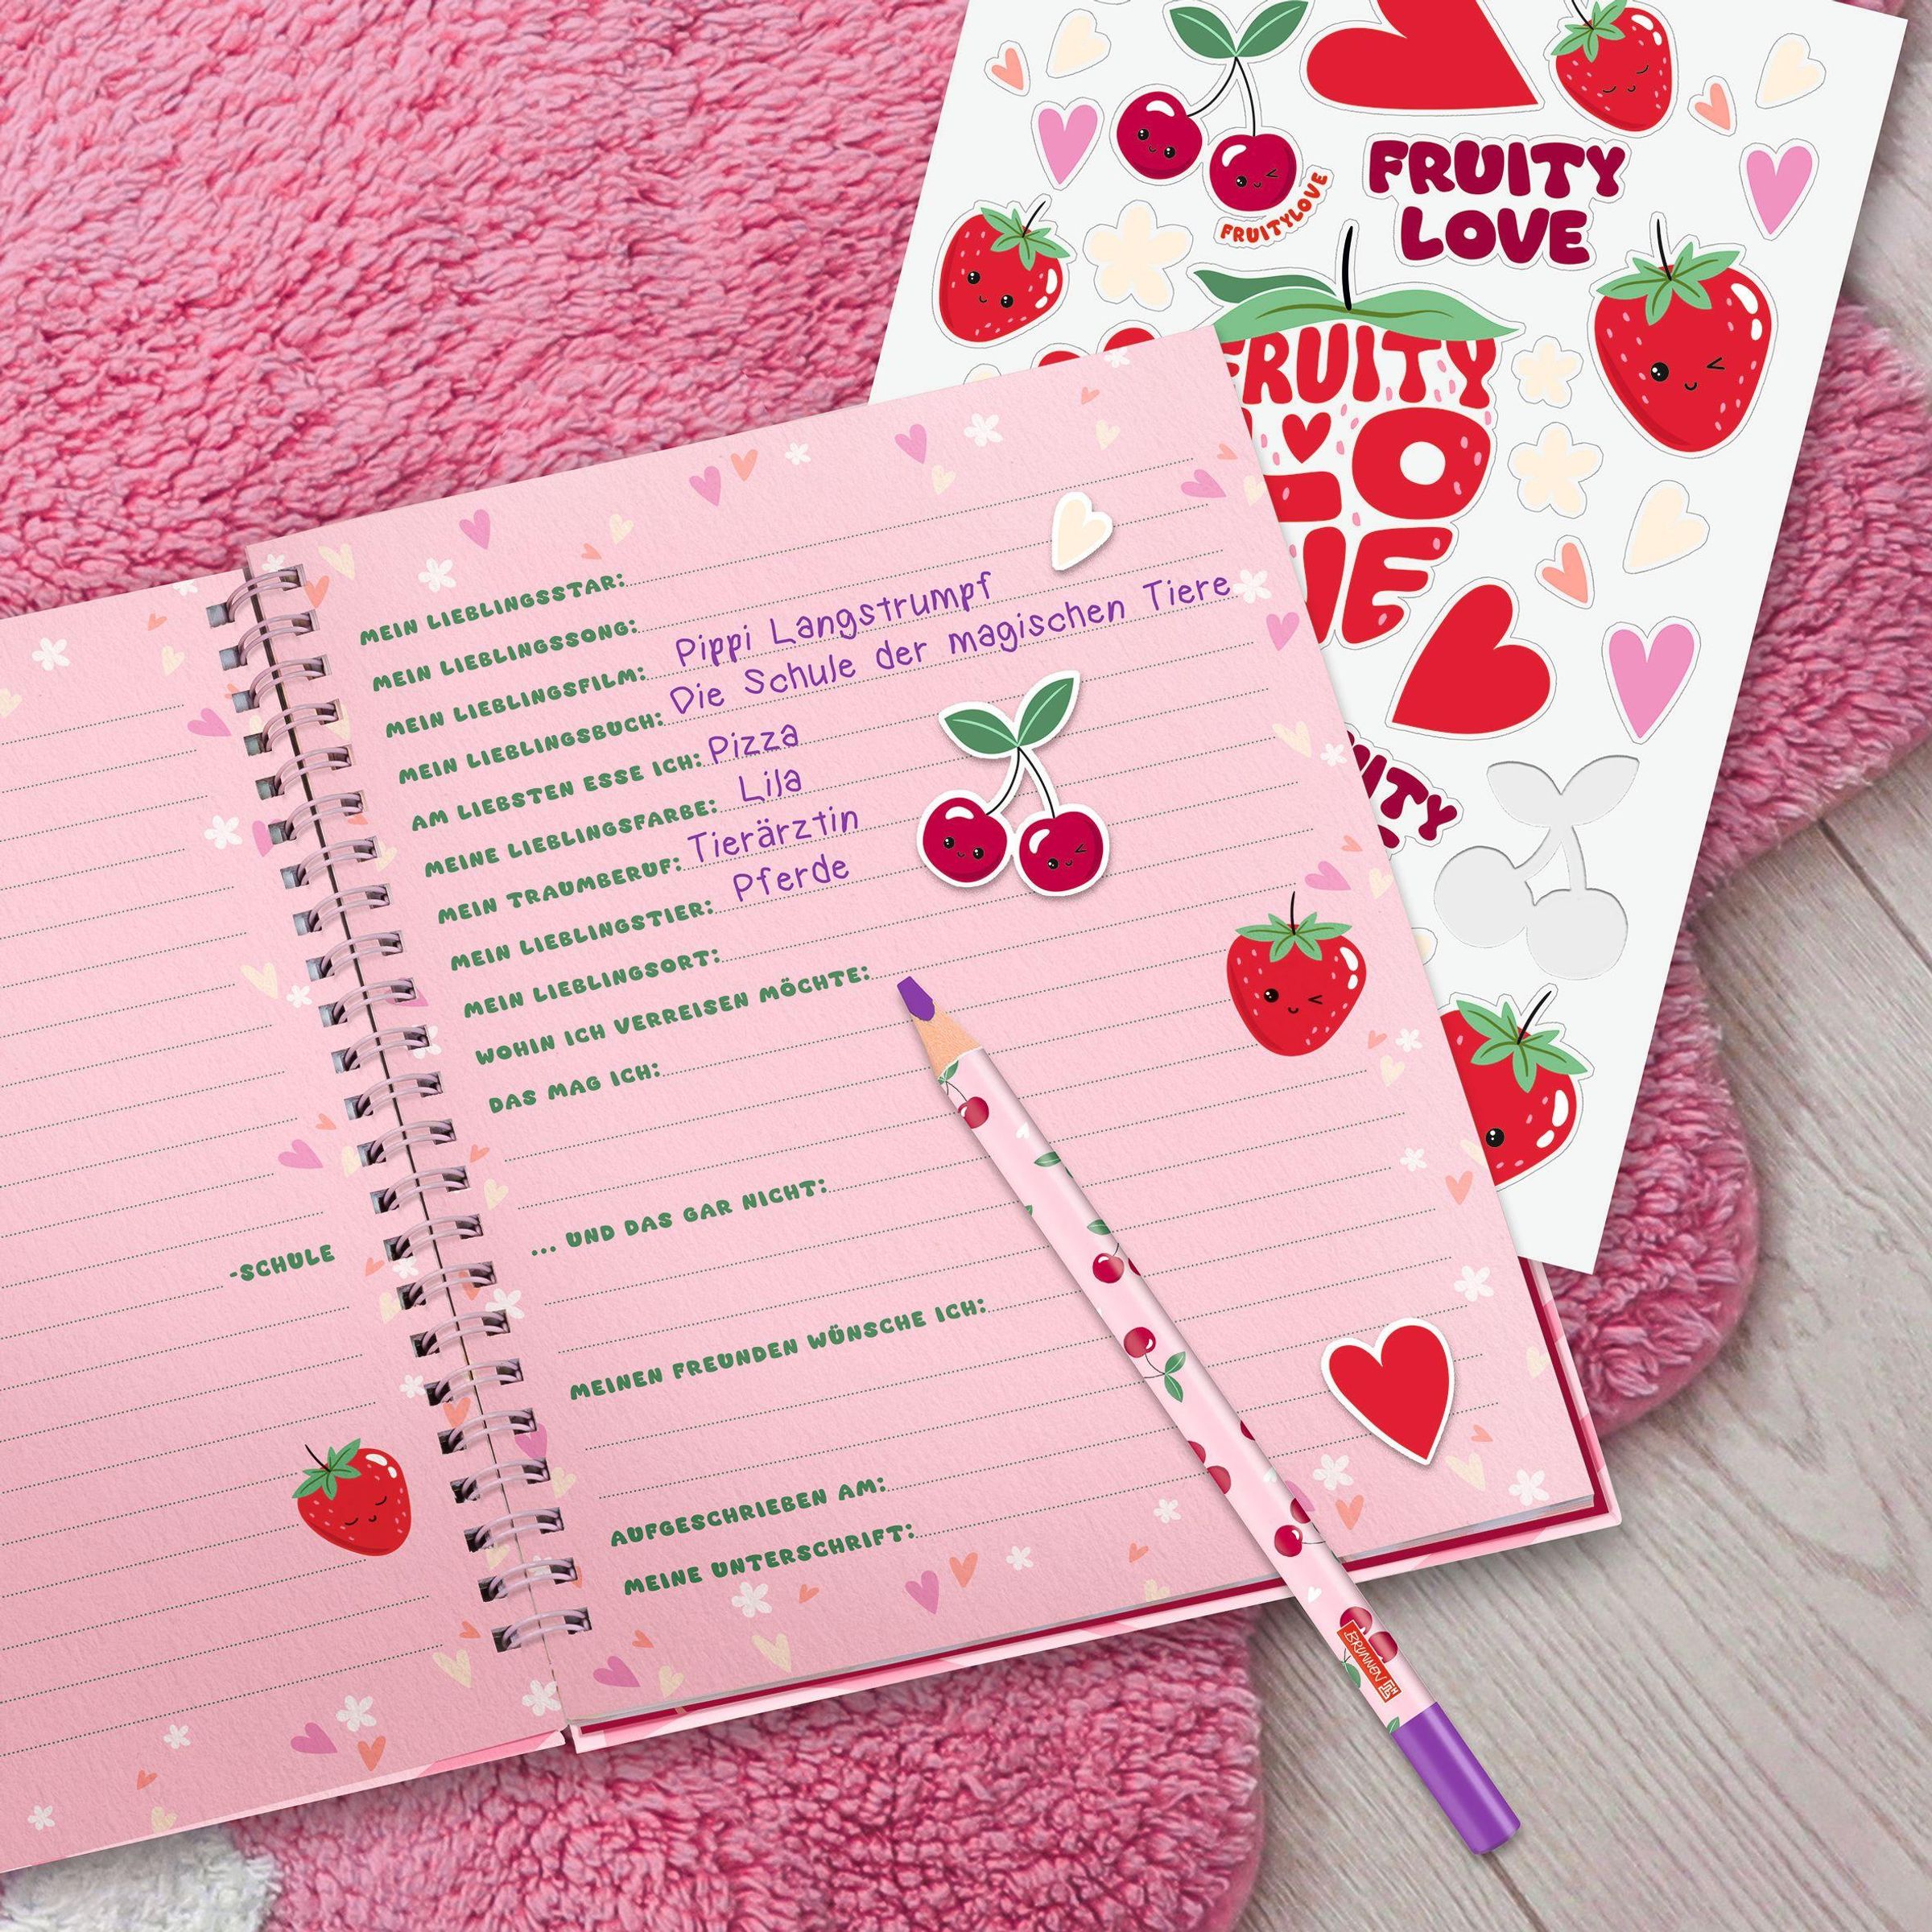 FRUITYLOVE
FRUITY
LOVE
FRUITY
LO
MEIN LIEBLINGSSTAR:
MEIN LIEBLINGSSONG:
MEIN LIEBLINGSFILM: Pippi Langstrumpf
MEIN LIEBLINGSBUCH: Die Schule der magischen Tiere
AM LIEBSTEN ESSE ICH: Pizza
MEINE LIEBLINGSFARBE: Lila
MEIN TRAUMBERUF: Tierärztin
MEIN LIEBLINGSTIER: Pferde
MEIN LIEBLINGSORT:
WOHIN ICH VERREISEN MÖCHTE:
DAS MAG ICH:
... UND DAS GAR NICHT:
MEINEN FREUNDEN WÜNSCHE ICH:
AUFGESCHRIEBEN AM:
MEINE UNTERSCHRIFT:
-SCHULE
BRUNNEN